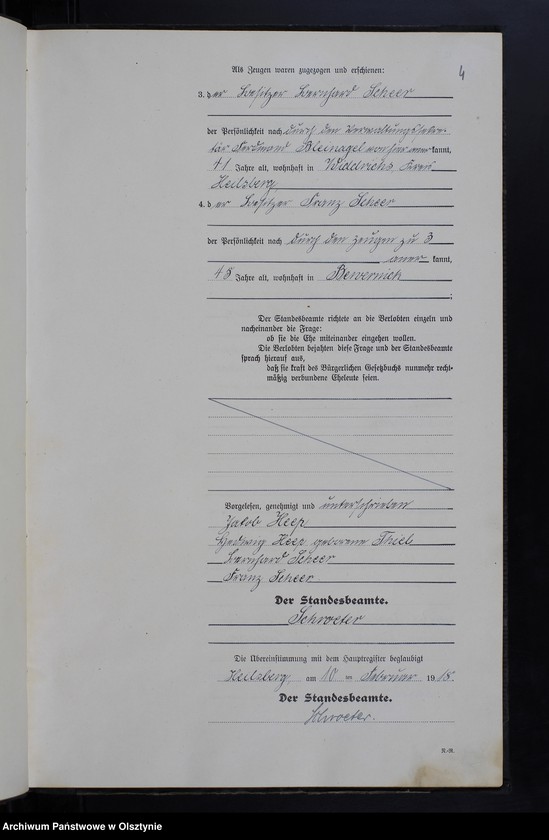 4
Als Zeugen waren zugezogen und erschienen:
3. der Besitzer Bernhard Scheer
der Persönlichkeit nach durch den Verwaltungssekre-
tär Ferdinand Bleinagel von hier anerkannt,
41 Jahre alt, wohnhaft in Widdrichs Kreis
Heilsberg
4. der Besitzer Franz Scheer
der Persönlichkeit nach durch den Zeugen zu 3
anerkannt,
48 Jahre alt, wohnhaft in Bewernick
;
Der Standesbeamte richtete an die Verlobten einzeln und
nacheinander die Frage:
ob sie die Ehe miteinander eingehen wollen.
Die Verlobten bejahten diese Frage und der Standesbeamte
sprach hierauf aus,
daß sie kraft des Bürgerlichen Gesetzbuchs nunmehr recht-
mäßig verbundene Eheleute seien.
Vorgelesen, genehmigt und unterschrieben
Jakob Heep
Hedwig Heep geborene Thiel
Bernhard Scheer
Franz Scheer
Der Standesbeamte.
Schroeter
Die Übereinstimmung mit dem Hauptregister beglaubigt
Heilsberg, am 10 ten Februar 1918.
Der Standesbeamte.
Schroeter.
R.-B.
Archiwum Państwowe w Olsztynie